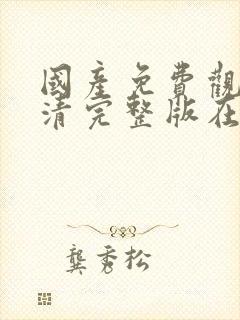 國產免費觀
清完整版在
龔秀松